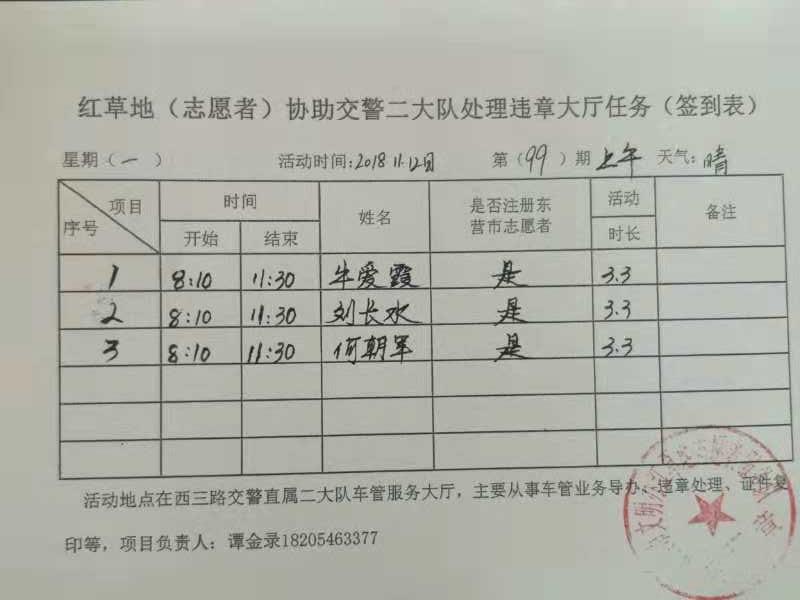 红草地（志愿者）协助交警二大队处理违章大厅任务（签到表）
星期（一） 活动时间：2018 11.12日 第（99）期 上午 天气：晴
项目 时间 姓名 是否注册东 活动 备注
序号 开始 结束 营市志愿者 时长
1 8:10 11:30 牛爱霞 是 3.3
2 8:10 11:30 刘长水 是 3.3
3 8:10 11:30 何朝军 是 3.3
活动地点在西三路交警直属二大队车管服务大厅，主要从事车管业务导办、违章处理、证件复
印等，项目负责人：谭金录18205463377